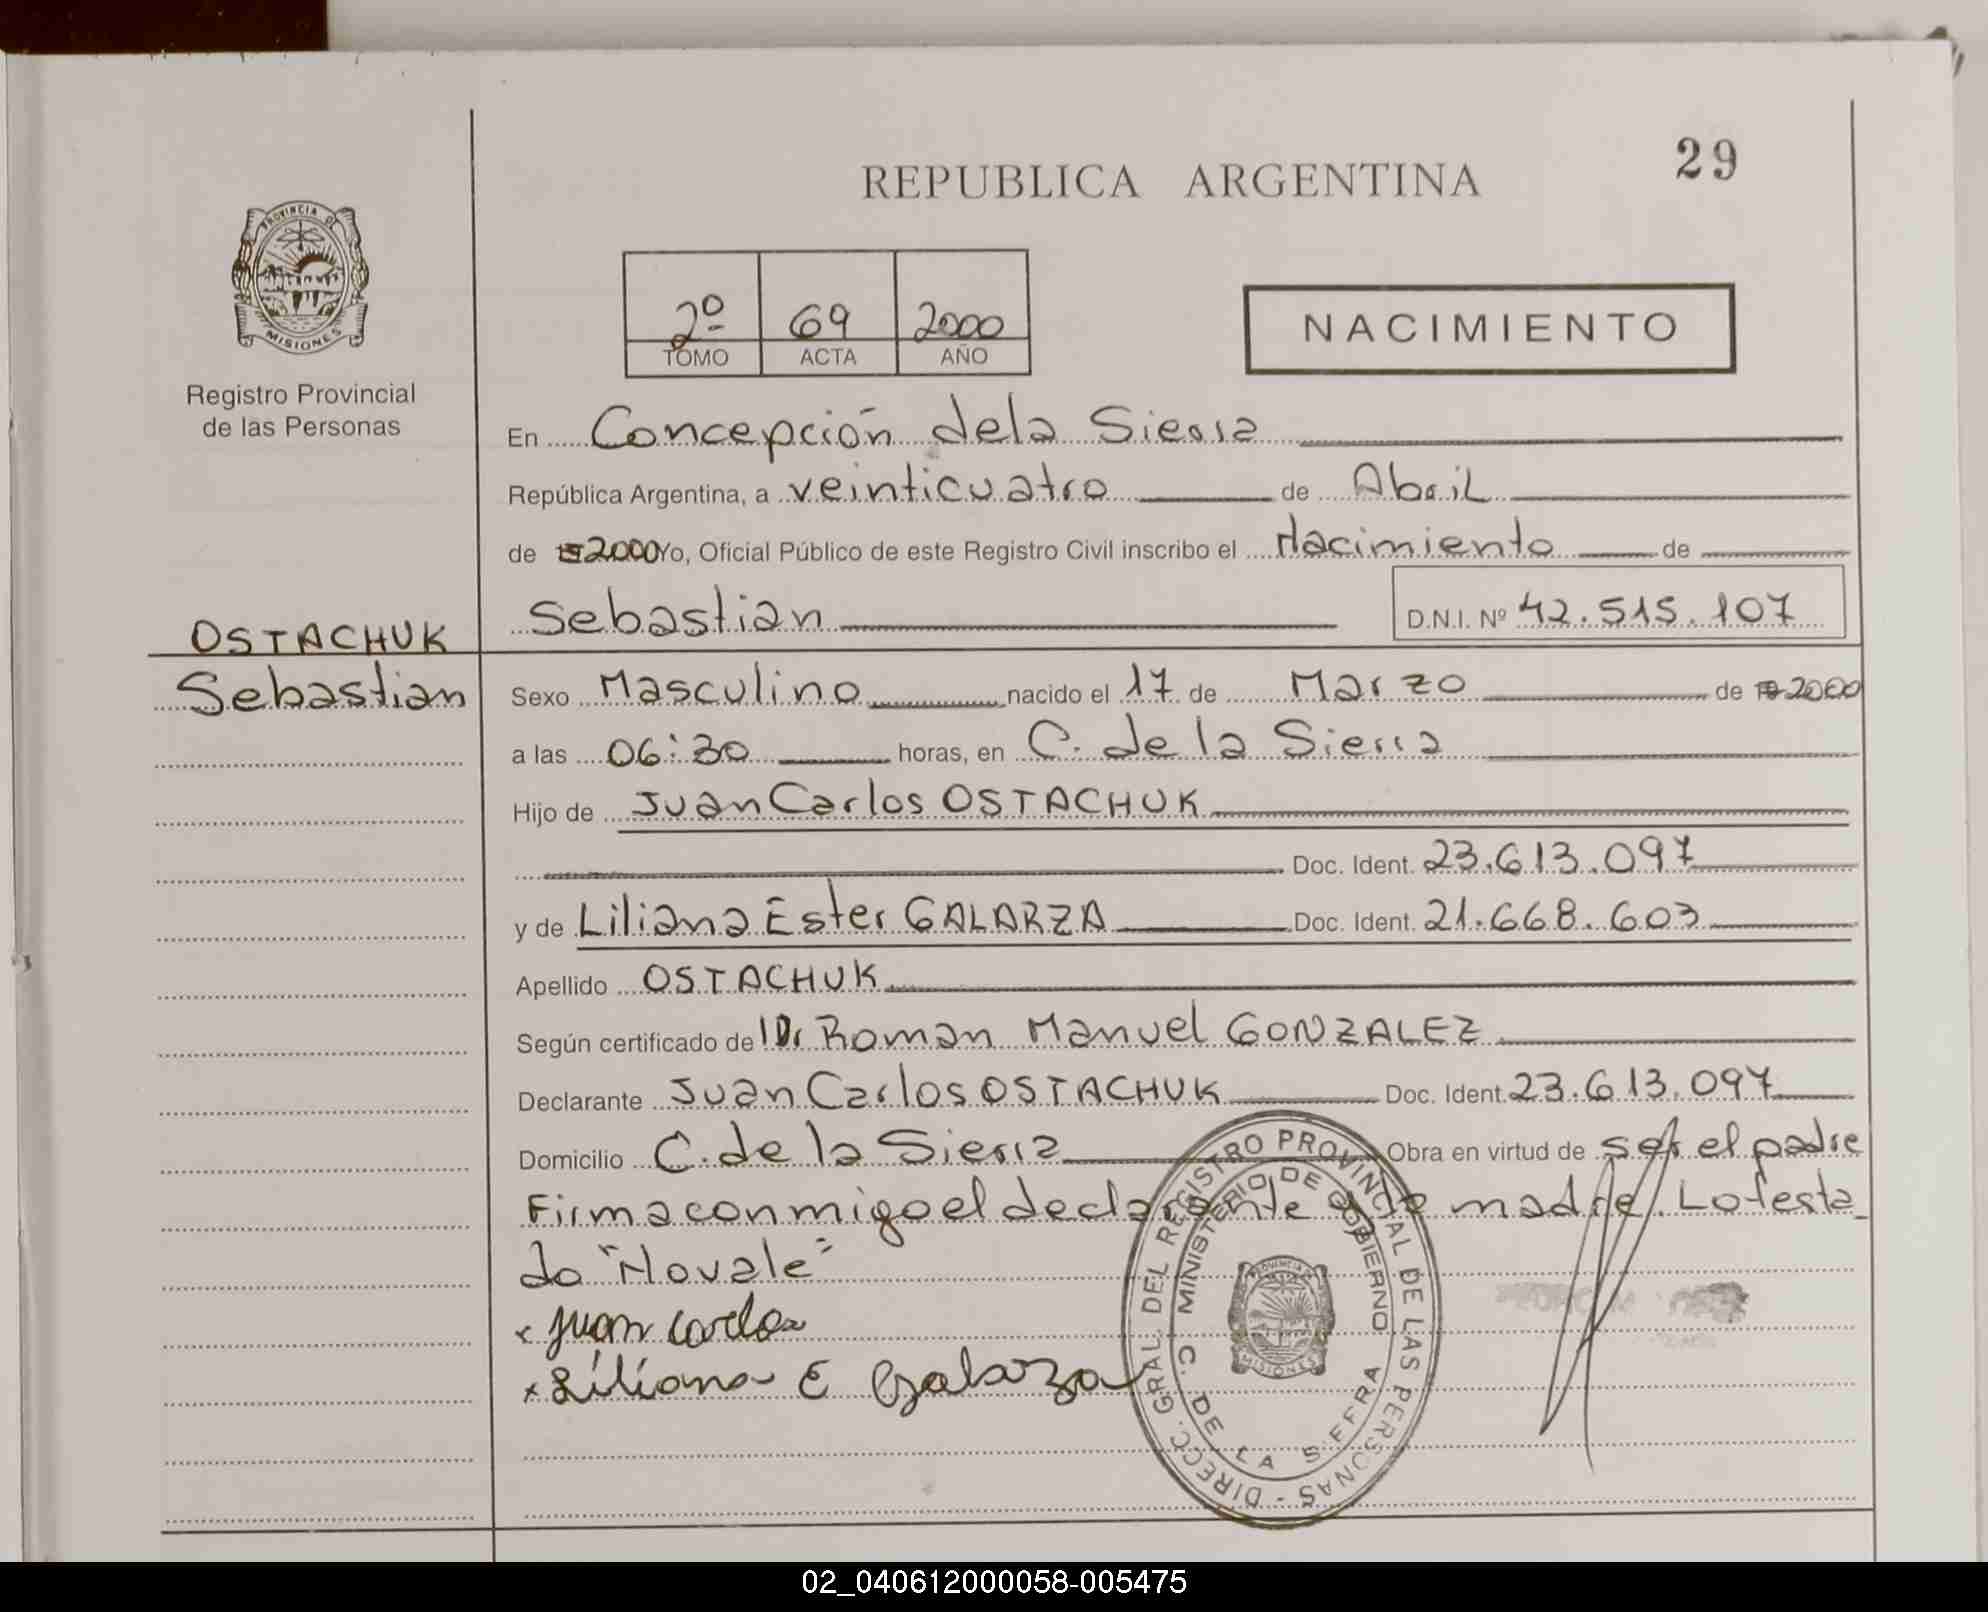 29
REPUBLICA ARGENTINA
PROVINCIA DE
MISIONES
Registro Provincial
de las Personas
2º 69 2000
TOMO ACTA AÑO
NACIMIENTO
En Concepción dela Sierra
República Argentina, a veinticuatro de Abril
de 2000 Yo, Oficial Público de este Registro Civil inscribo el Nacimiento de
Sebastian D.N.I. Nº 42.515.107
OSTACHUK
Sebastian
Sexo Masculino nacido el 17 de Marzo de 2000
a las 06:30 horas, en C. de la Sierra
Hijo de Juan Carlos OSTACHUK
Doc. Ident. 23.613.097
y de Liliana Ester GALARZA Doc. Ident. 21.668.603
Apellido OSTACHUK
Según certificado de Dr Roman Manuel GONZALEZ
Declarante Juan Carlos OSTACHUK Doc. Ident. 23.613.097
Domicilio C. de la Sierra Obra en virtud de ser el padre
Firma conmigo el declarante y la madre. Lo testa_
do "No vale"
x Juan Carlos
x Liliana E Galarza
DIRECC. GRAL DEL REGISTRO PROVINCIAL DE LAS PERSONAS -
MINISTERIO DE GOBIERNO
PROVINCIA DE
MISIONES
C. DE LA SIERRA
02_040612000058-005475